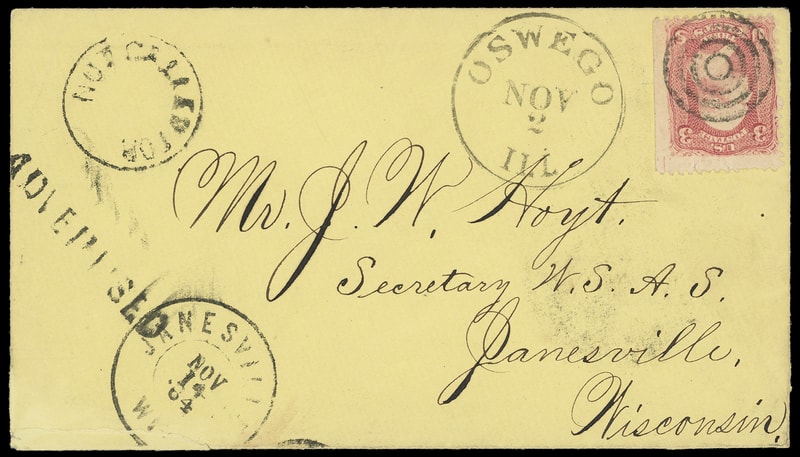 NOT CALLED FOR
OSWEGO
NOV
2
ILL.
3 3
U.S.
ADVERTISED
Mr. J. W. Hoyt.
Secretary W. S. A. S.
Janesville,
Wisconsin.
JANESVILLE
NOV
14
'64